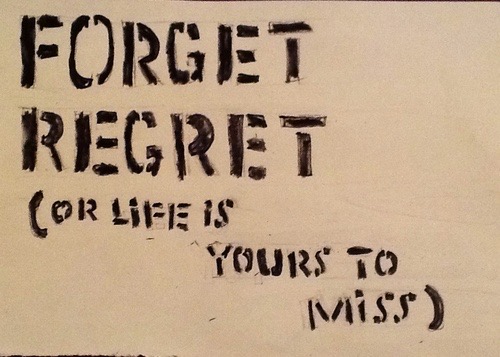 FORGET
REGRET
(OR LiFE iS
YOURS TO
MiSS)